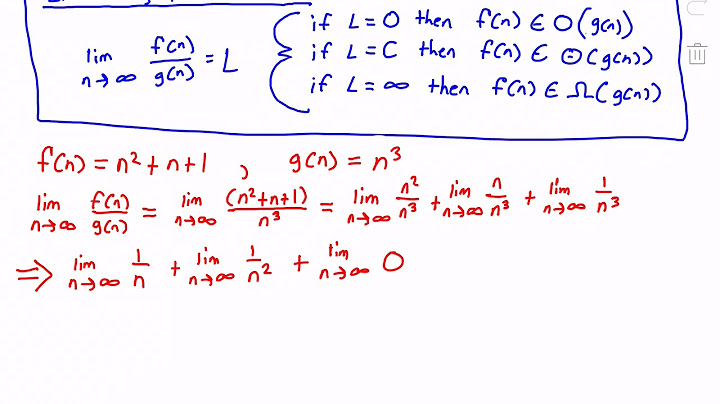 if L = 0 then f(n) ∈ O(g(n))
lim n→∞ f(n)/g(n) = L { if L = C then f(n) ∈ Θ(g(n))
if L = ∞ then f(n) ∈ Ω(g(n))
f(n) = n² + n + 1 , g(n) = n³
lim n→∞ f(n)/g(n) = lim n→∞ (n²+n+1)/n³ = lim n→∞ n²/n³ + lim n→∞ n/n³ + lim n→∞ 1/n³
⇒ lim n→∞ 1/n + lim n→∞ 1/n² + lim n→∞ 0